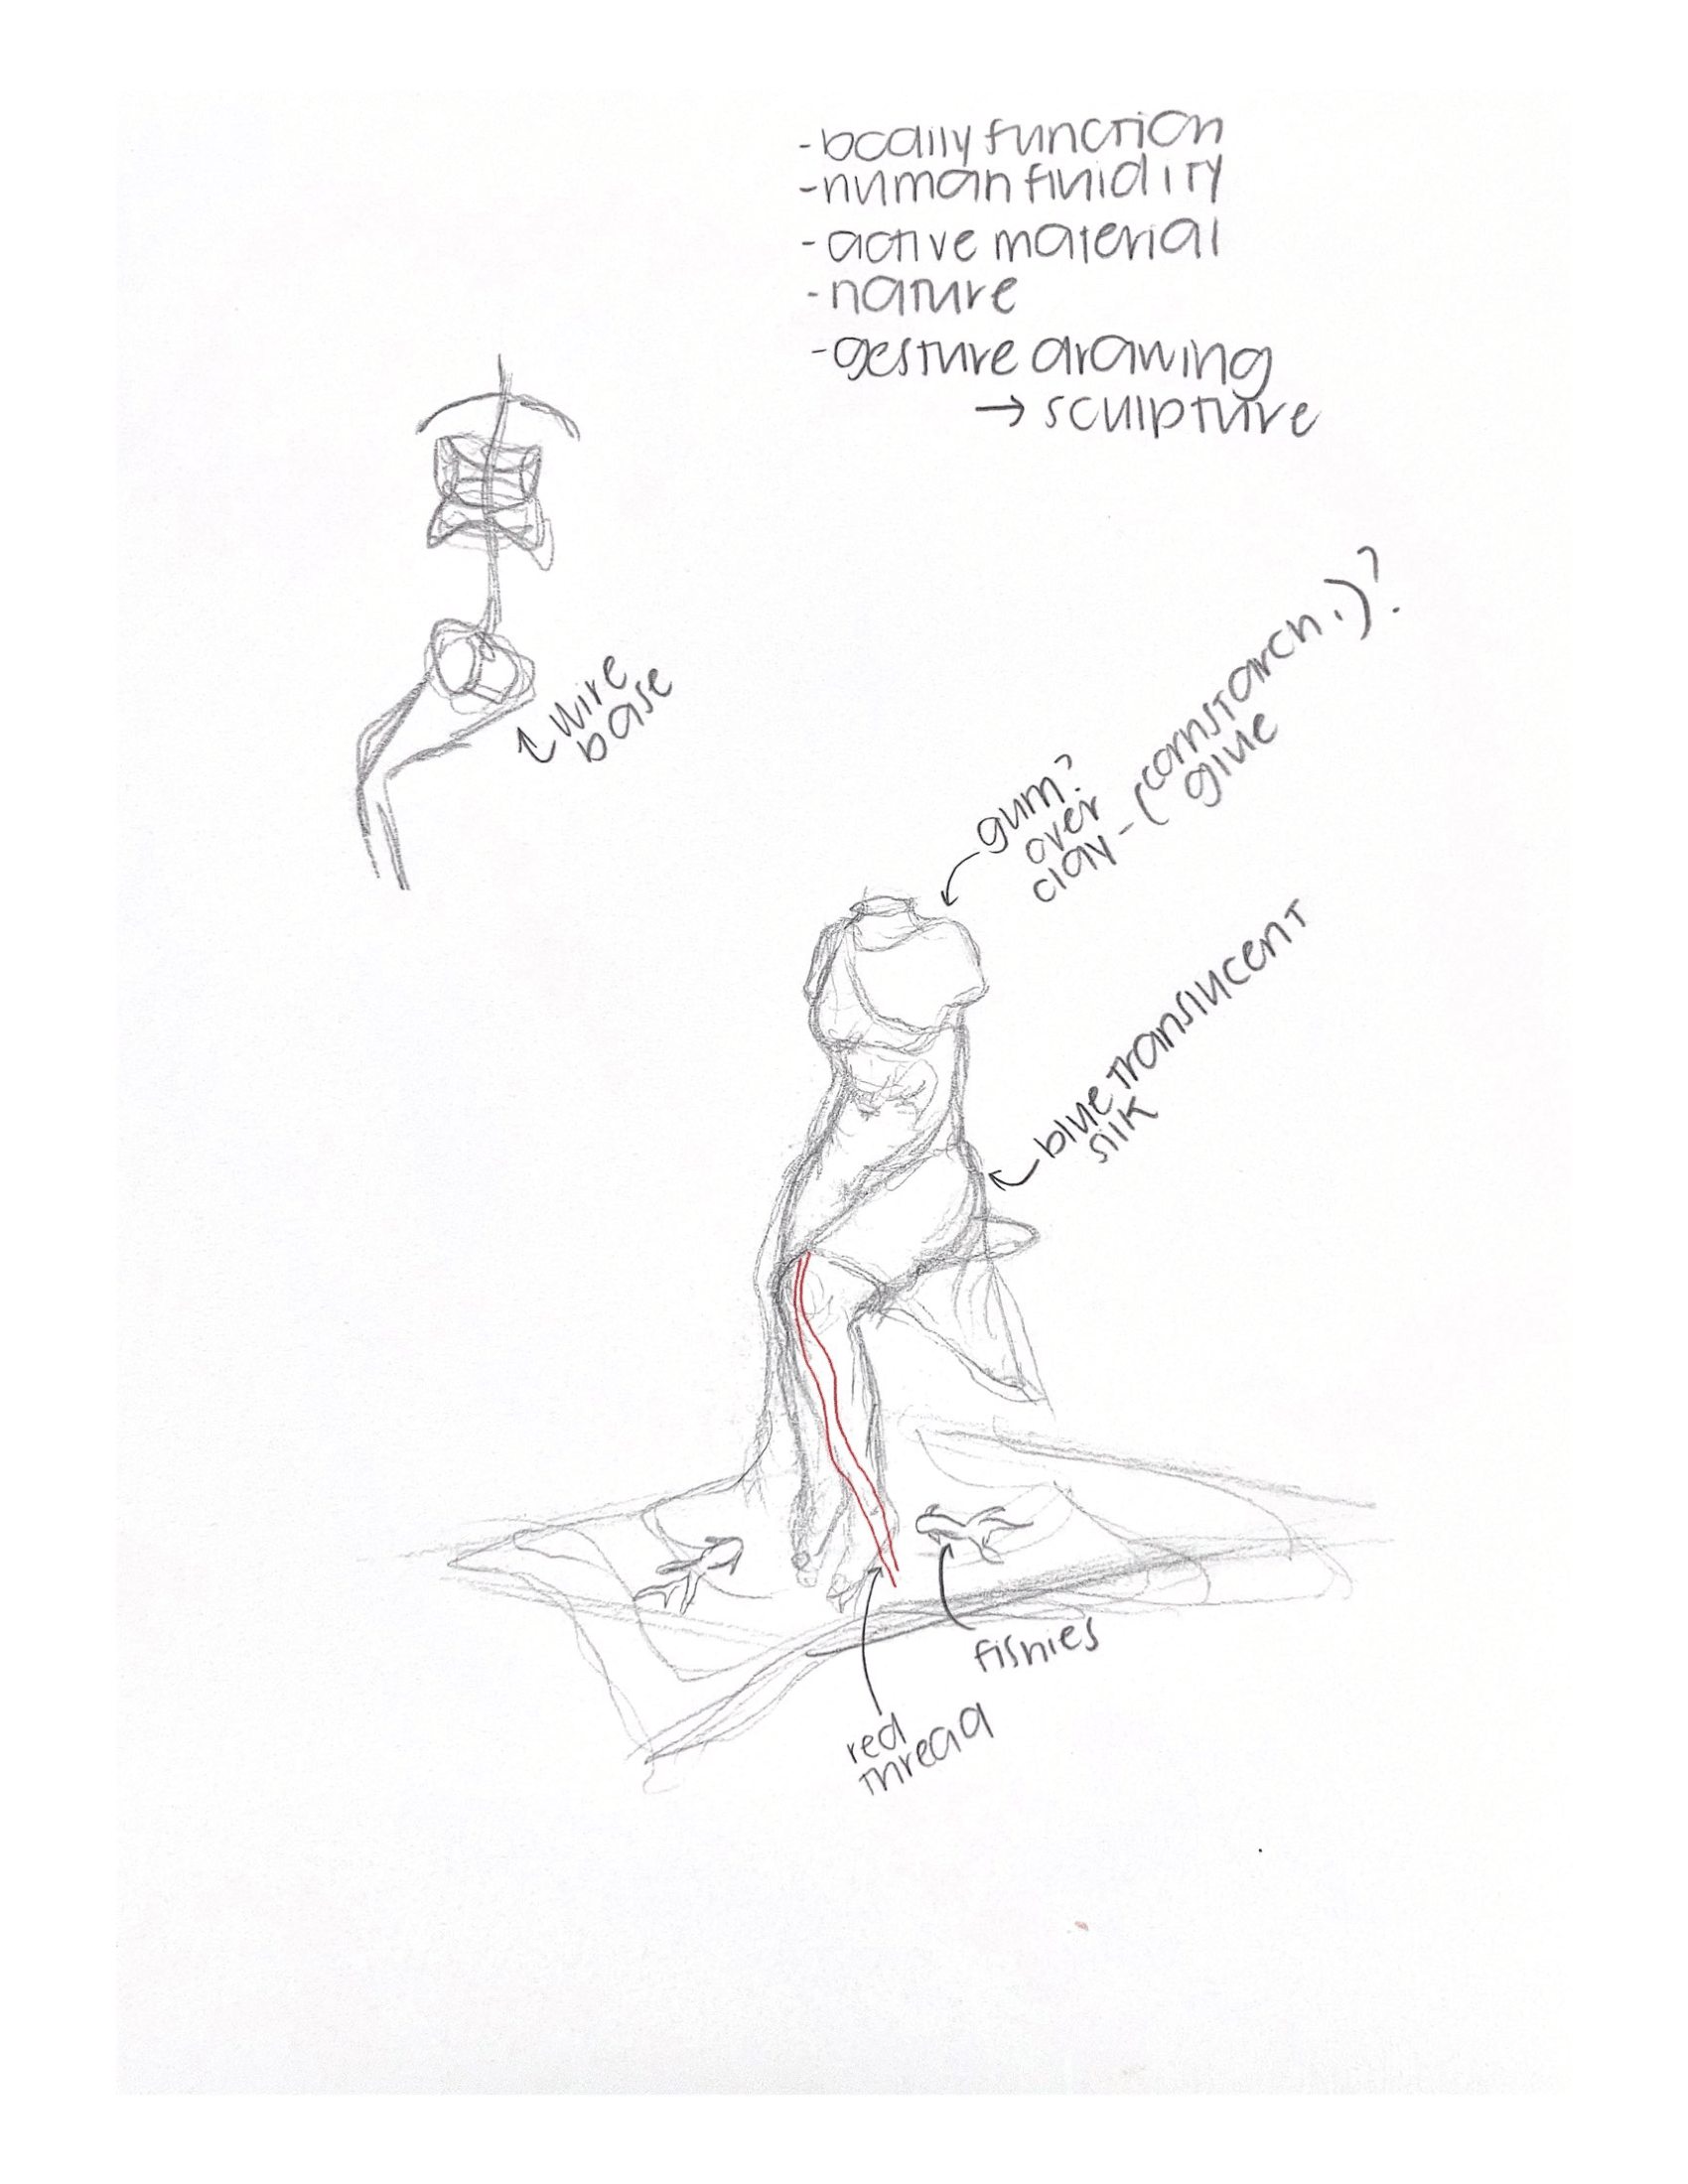 -bodily function
-human fluidity
-active material
-nature
-gesture drawing
→ sculpture
wire
base
gum?
over
clay - (cornstarch,)?
glue
blue translucent
silk
fishies
red
thread